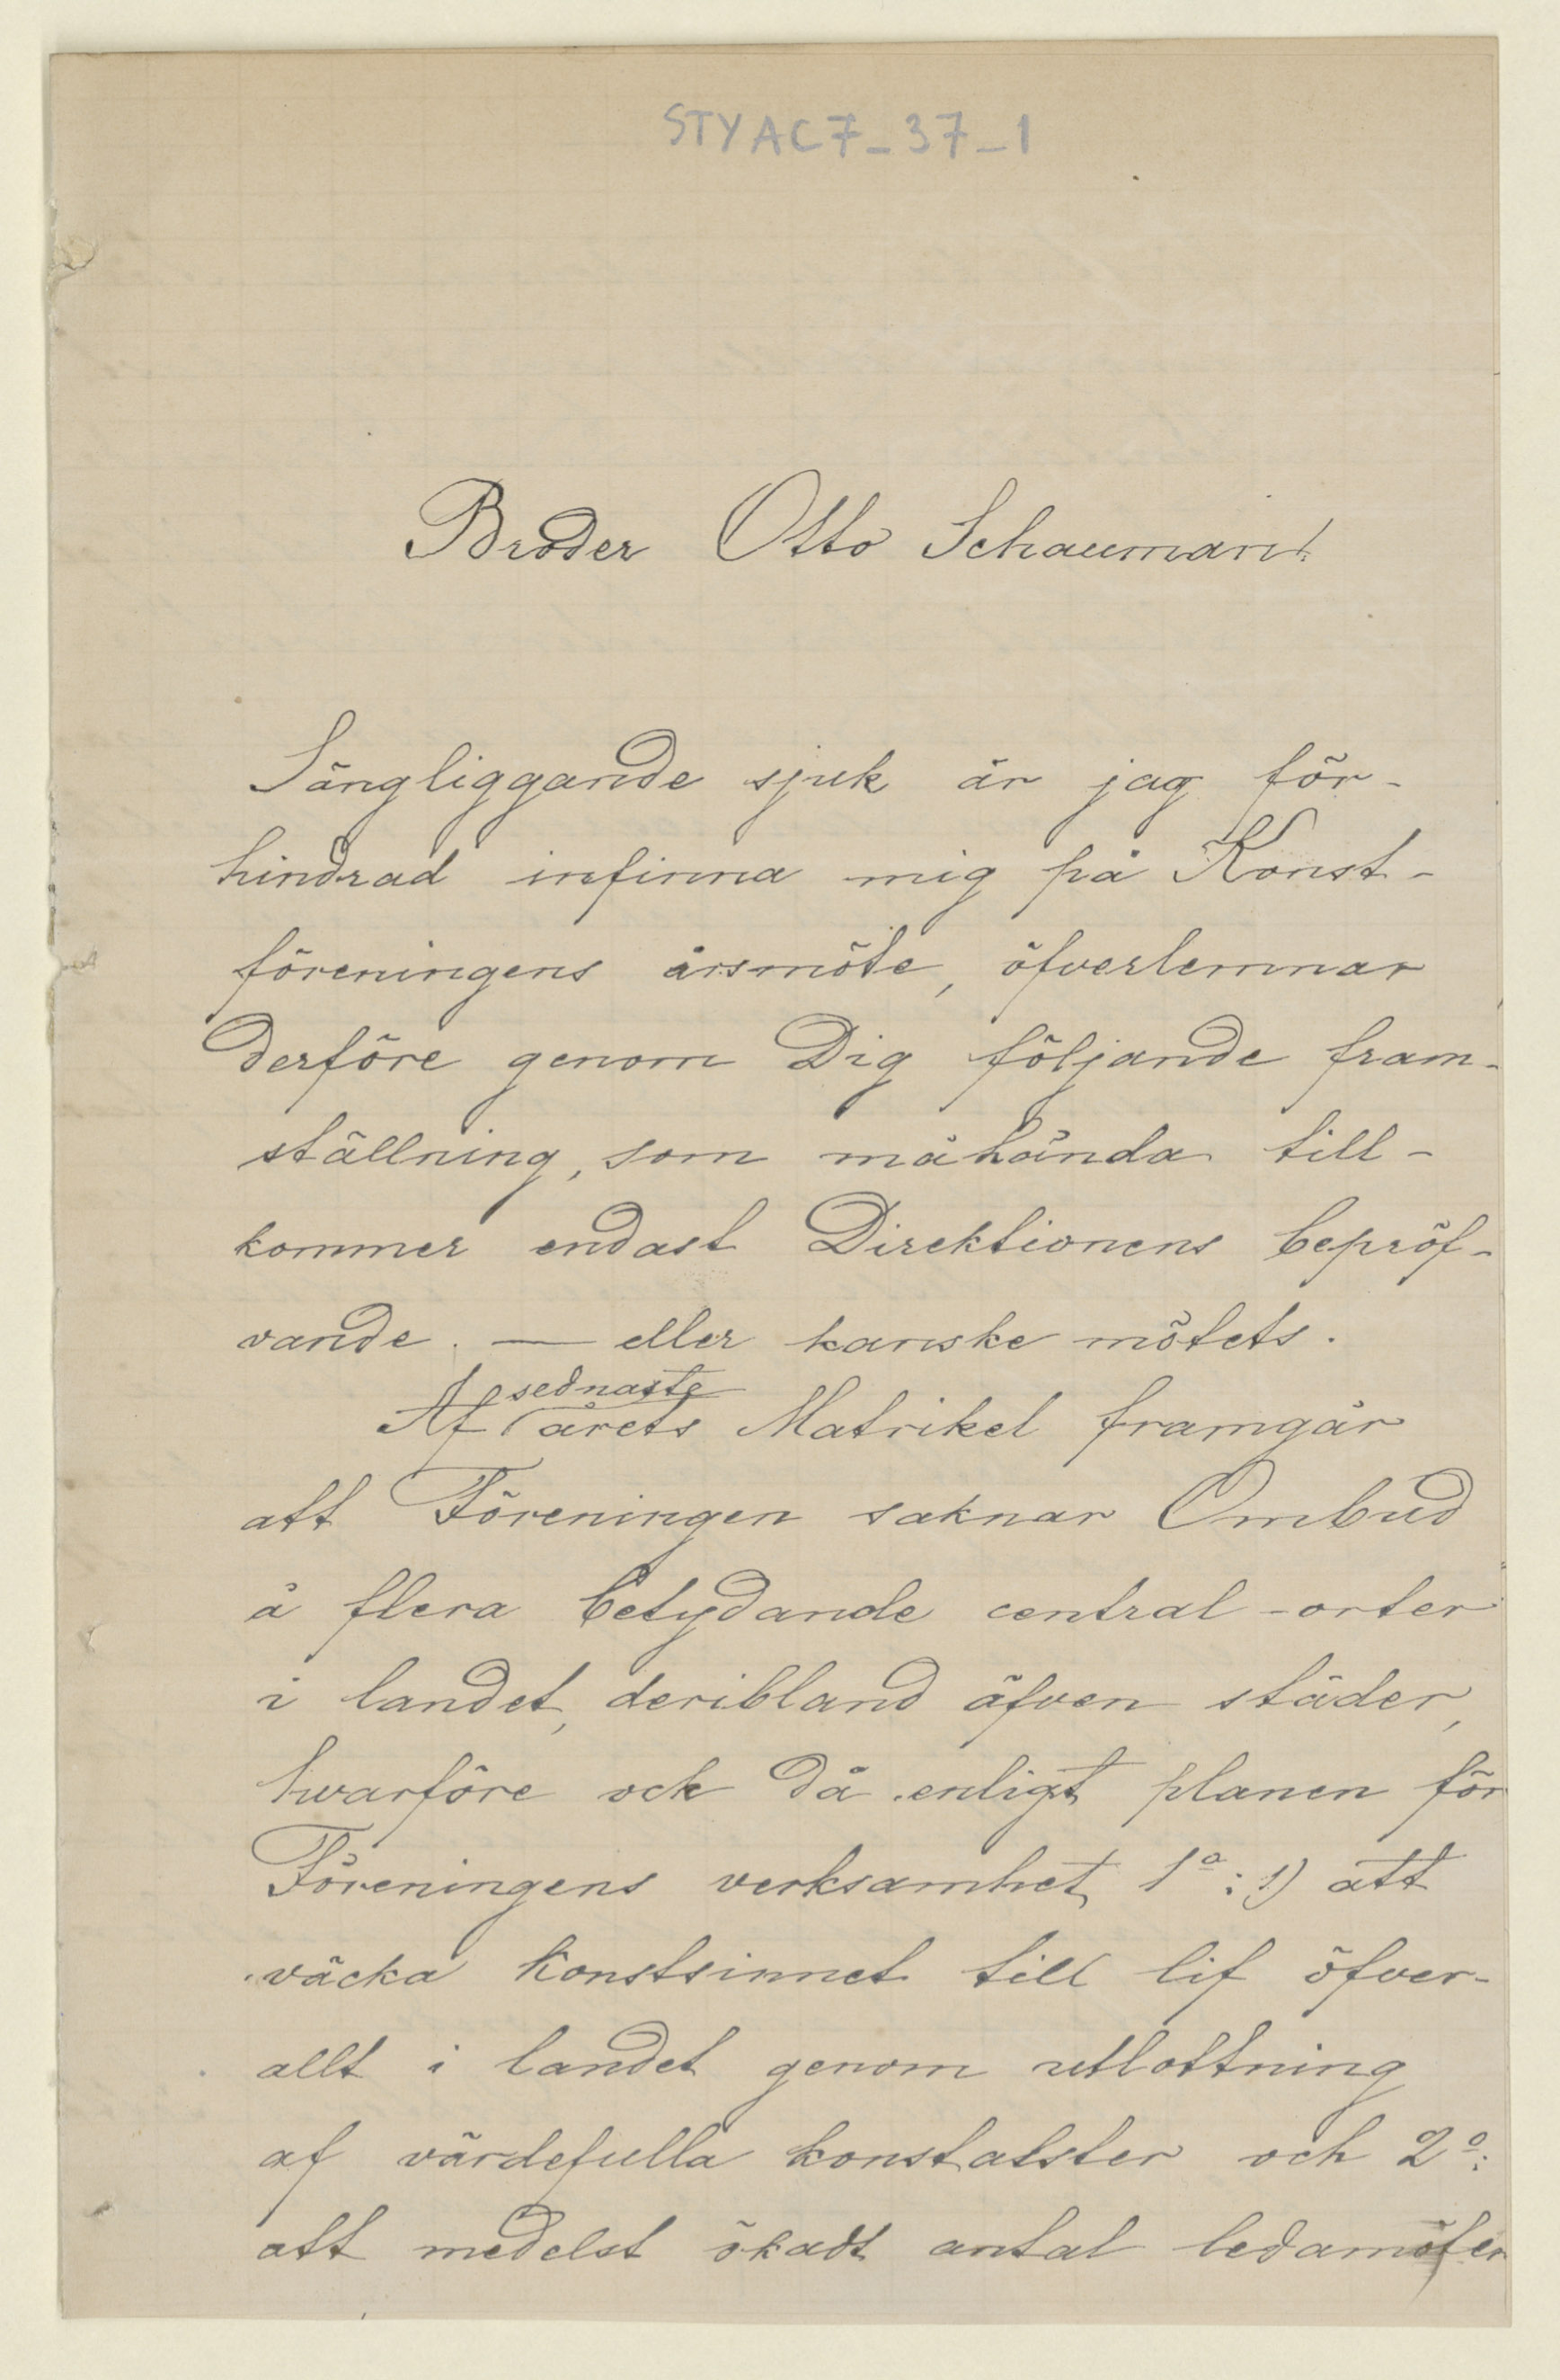 STYAC7_37_1
Broder Otto Schauman!
Sängliggande sjuk är jag för-
hindrad infinna mig på Konst-
föreningens årsmöte, öfverlemnar
derföre genom Dig följande fram-
ställning, som måhända till-
kommer endast Direktionens bepröf-
vande. — eller kanske mötets.
sednaste
Af årets Matrikel framgår
att Föreningen saknar Ombud
å flera betydande central-orter
i landet, deribland äfven städer,
hvarföre och då enligt planen för
Föreningens verksamhet, 1º: 1) att
väcka konstsinnet till lif öfver-
allt i landet genom utlottning
af värdefulla konstalster och 2º:
att medelst ökadt antal ledamöter